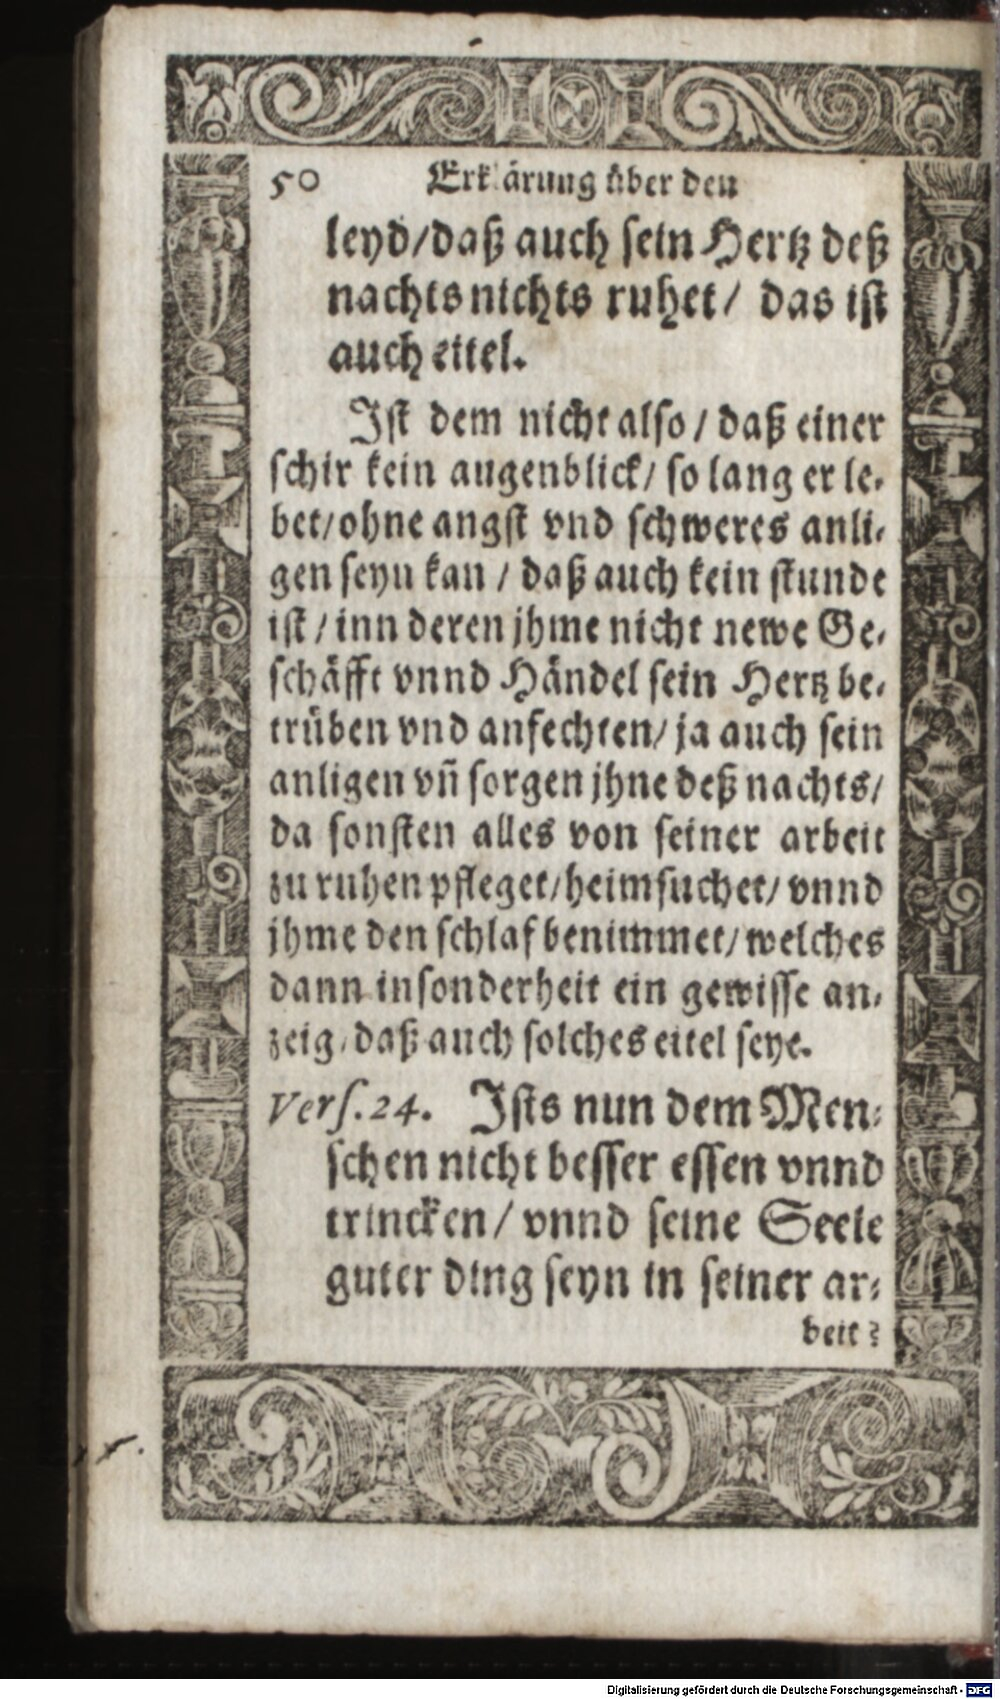 50 Erklärung über den
leyd/daß auch sein Hertz deß
nachts nichts ruhet/ das ist
auch eitel.
Ist dem nicht also/ daß einer
schir kein augenblick/ so lang er le-
bet/ohne angst vnd schweres anli-
gen seyn kan/ daß auch kein stunde
ist/ inn deren jhme nicht newe Ge-
schäfft vnnd Händel sein Hertz be-
trüben vnd anfechten/ ja auch sein
anligen vñ sorgen jhne deß nachts/
da sonsten alles von seiner arbeit
zu ruhen pfleget/heimsuchet/ vnnd
jhme den schlaf benimmet/welches
dann insonderheit ein gewisse an-
zeig/daß auch solches eitel seye.
Vers.24. Ists nun dem Men-
schen nicht besser essen vnnd
trincken/ vnnd seine Seele
guter ding seyn in seiner ar-
beit?
Digitalisierung gefördert durch die Deutsche Forschungsgemeinschaft - DFG